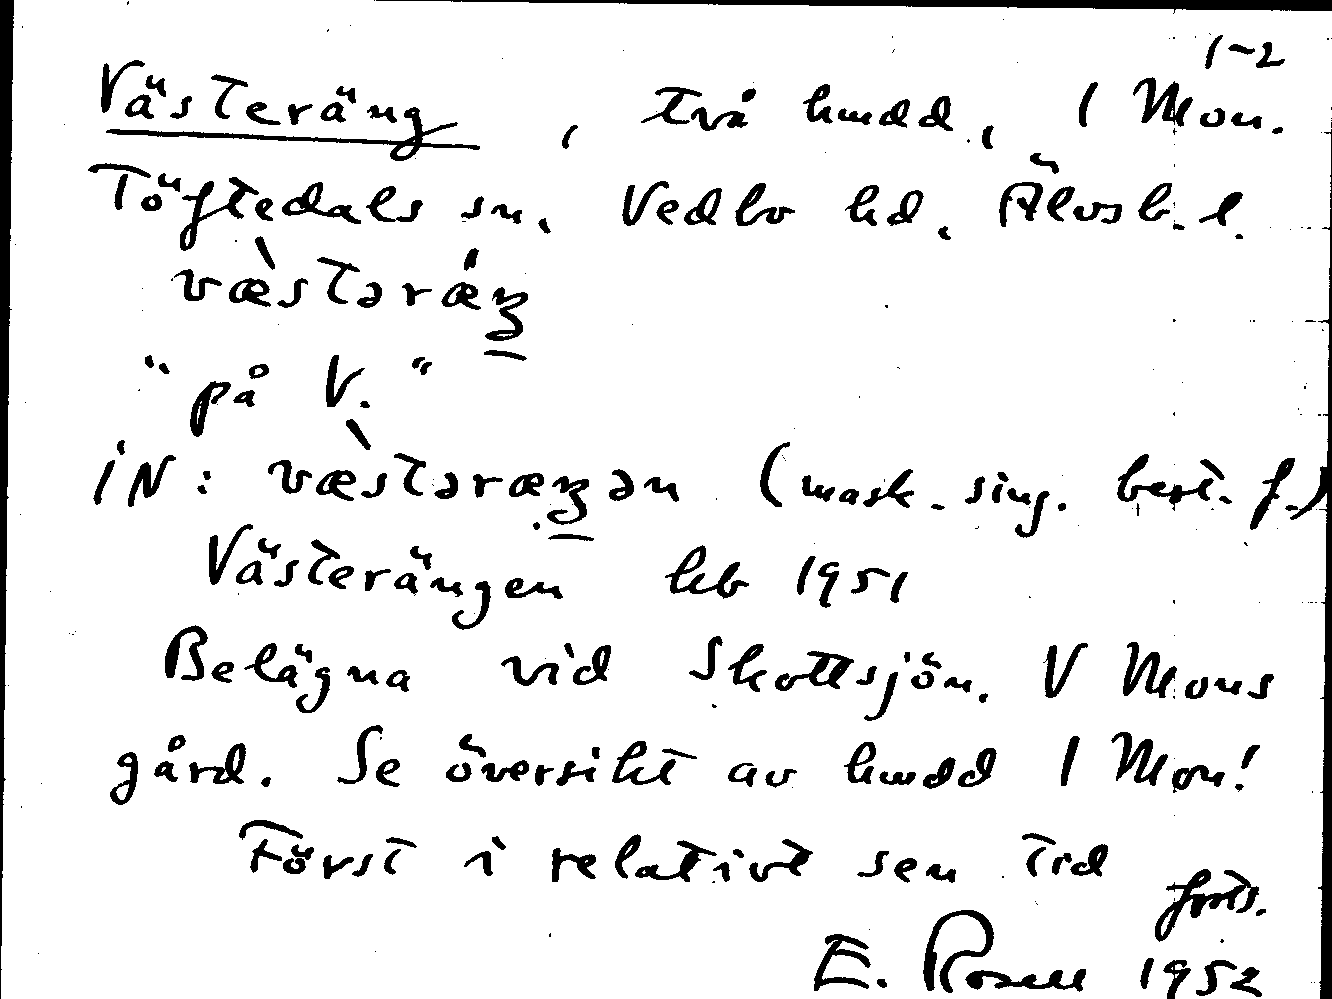 1-2
Västeräng, två hmdd, 1 Mon.
Töftedals sn. Vedbo hd. Älvsb. l.
væ̀stəræ̀ŋ
"på V."
iN: væ̀stəræŋən (mask. sing. best. f.)
Västerängen kb 1951
Belägna vid Skottsjön. V Mons
gård. Se översikt av hmdd 1 Mon!
Först i relativt sen tid
forts.
E. Rosell 1952